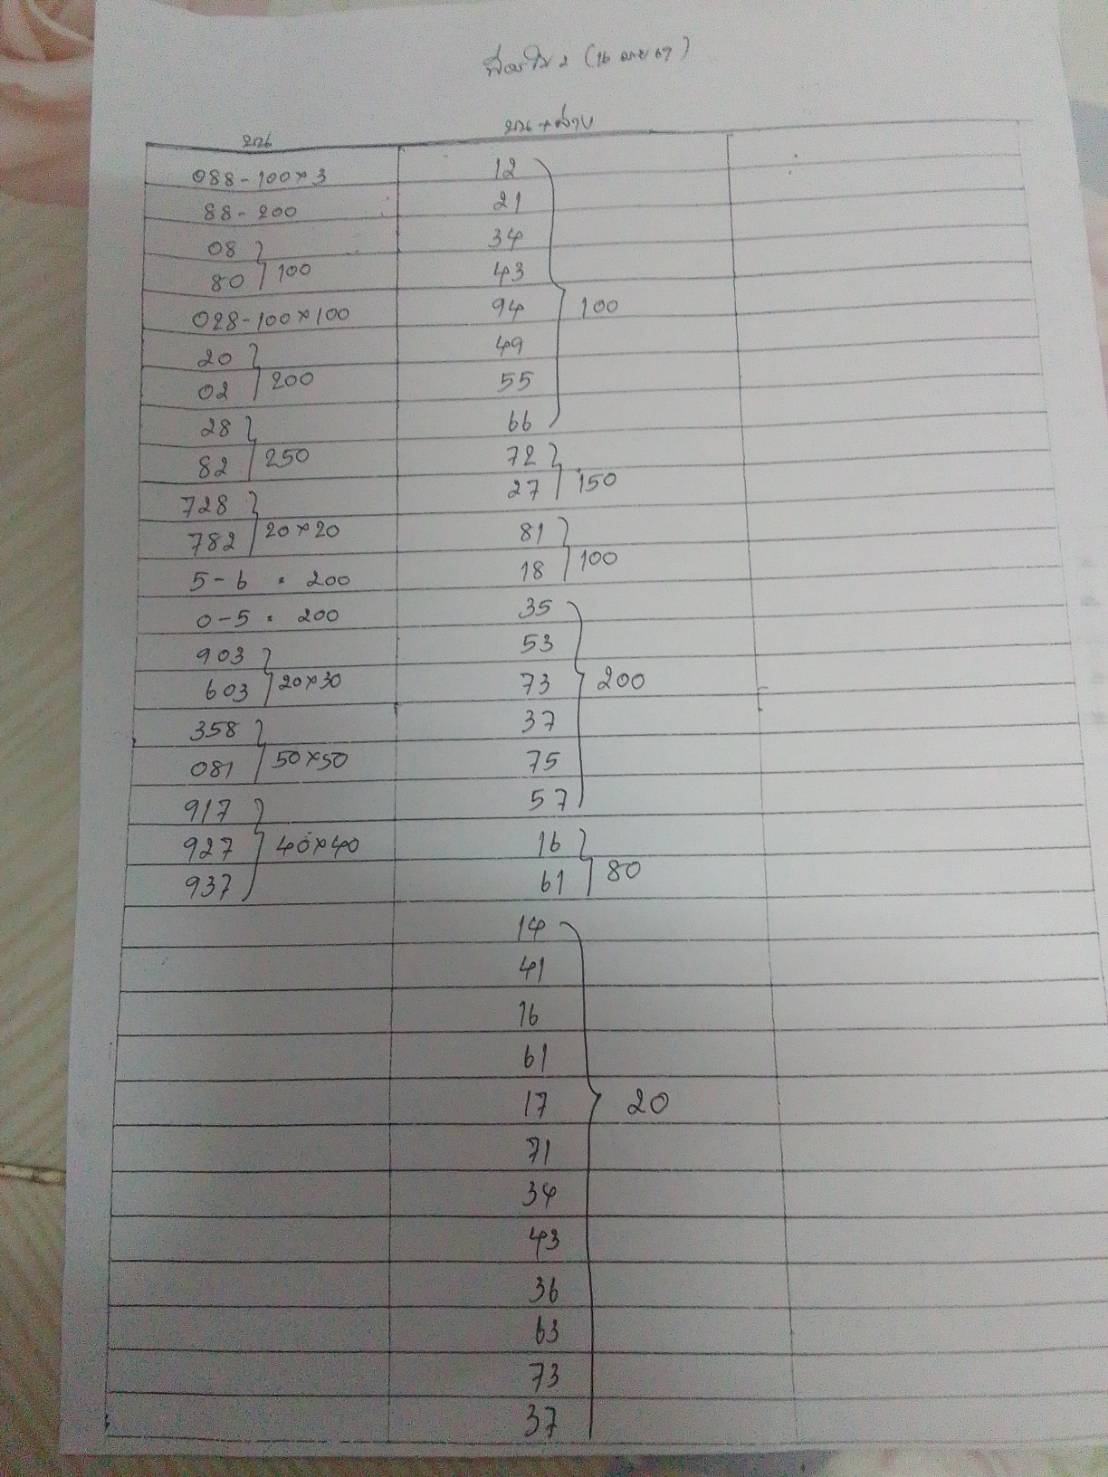 (16 เมย 67)
บน
088-100×3
88-200
08
80 } 100
028-100×100
20
02 } 200
28
82 } 250
728
782 } 20×20
5-6 = 200
0-5 = 200
903
603 } 20×30
358
081 } 50×50
917
927 } 40×40
937
บน+ล่าง
12
21
34
43
94 } 100
49
55
66
72
27 } 150
81
18 } 100
35
53
73 } 200
37
75
57
16
61 } 80
14
41
16
61
17 } 20
71
34
43
36
63
73
37